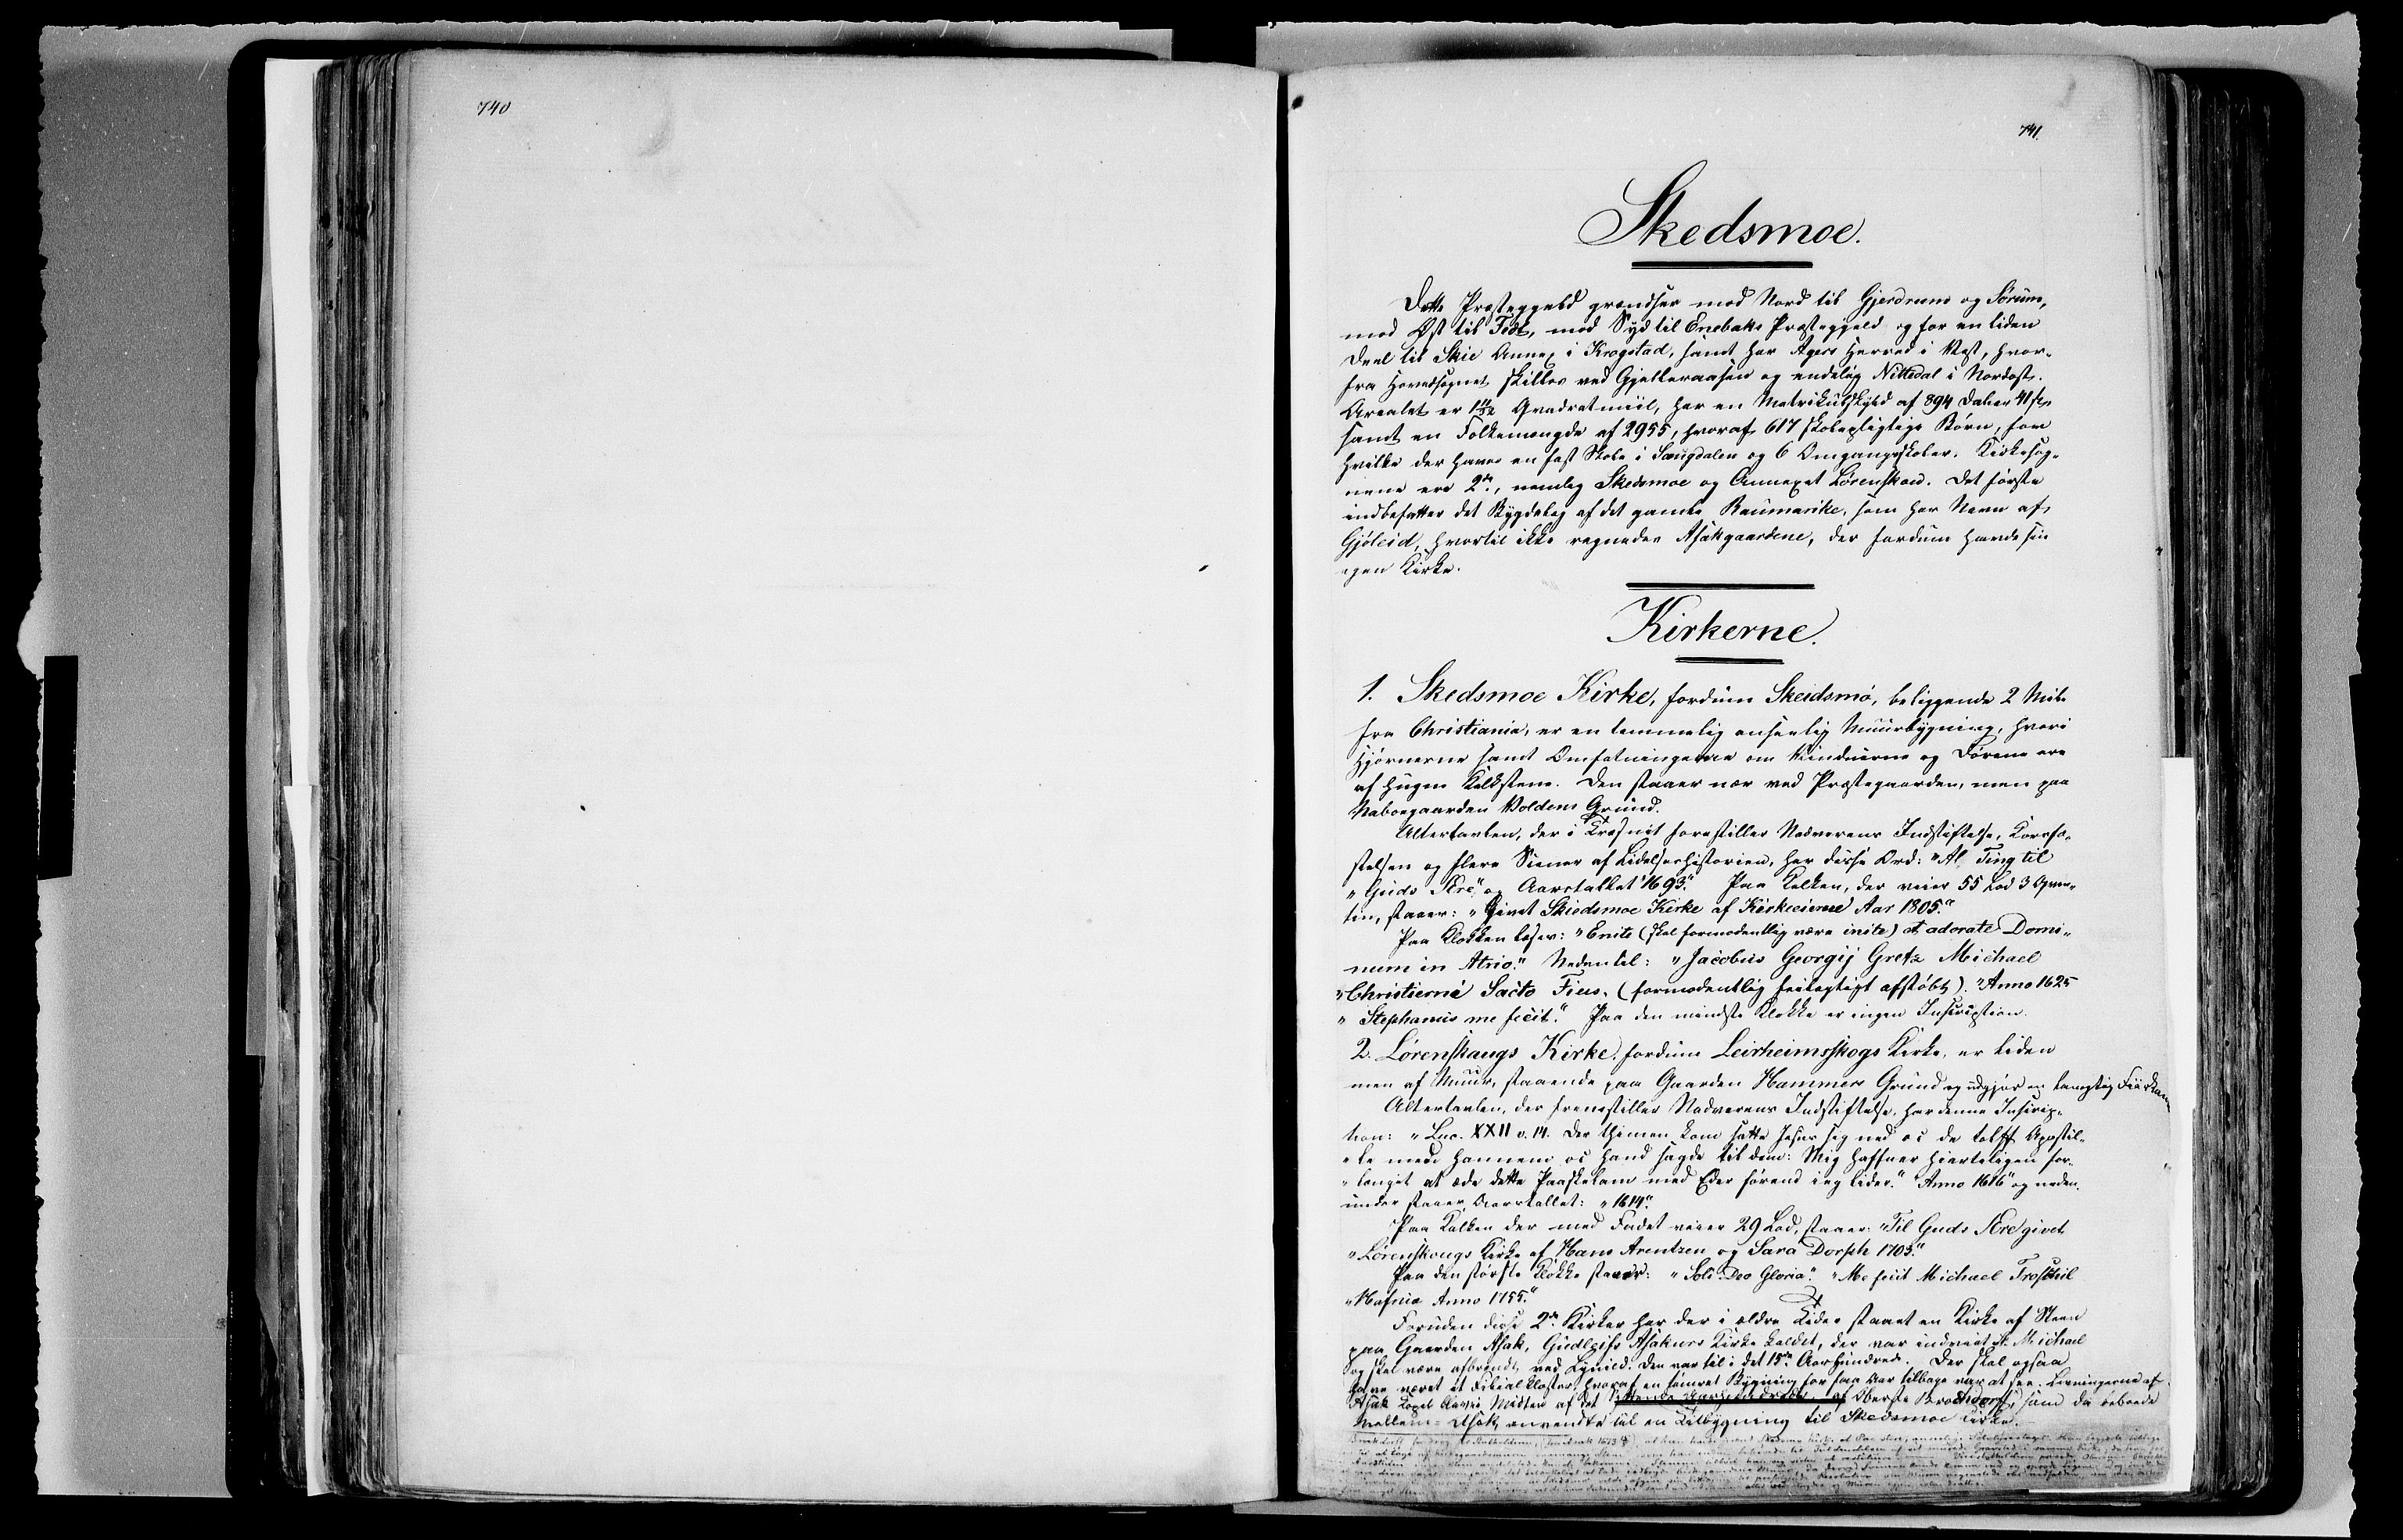 740
741.
Skedsmoe.
Dette Præstegjeld grændser mod Nord til Gjerdrum og Sørum,
mod Øst til Fedt, mod Syd til Enebaks Præstegjeld og for en liden
Deel til Skie Annex i Krogstad, samt har Agers Herred i Vest, hvor-
fra Hovedsognet skilles ved Gjelleraasen og endelig Nittedal i Nordost.
Arealet er Qvadratmiil, har en Matrikulskyld af 894 Daler 41
samt en Folkemængde af 2955, hvoraf 617 skolepligtige Børn, for
hvilke der haves en fast Skole i Saugdalen og 6 Omgangsskoler. Kirkesog-
nene ere 2de, nemlig Skedsmoe og Annexet Lørenskou. Det første
indbefatter det Bygdelag af det gamle Raumarike, som har Navn af
Gjøleid, hvortil ikke regnedes Asakgaardene, der fordum havde sin
egen Kirke.
Kirkerne.
1. Skedsmoe Kirke, fordum Skeidsmo, beliggende 2 Mile
fra Christiania, er en temmelig anseelig Muurbygning, hvori
Hjørnerne samt Omfatningerne om Vinduerne og Dørene ere
af hugne Kalkstene. Den staaer nær ved Præstegaarden, men paa
Nabogaarden Voldens Grund.
Altertavlen, der i Træsnit forestiller Nadverens Indstiftelse, Korsfæ-
stelsen og flere Scener af Lidelseshistorien, har disse Ord: "Al Ting til
"Guds Ære" og Aarstallet "1693." Paa Kalken, der veier 55 Lod 3 Qvin-
tin, staaer: "Givet Skiedsmoe Kirke af Kirkeeierne Aar 1805."
Paa Klokken læses: "Enite (skal formodentlig være inite) et adorate Domi-
num in Atrio." Nedentil: "Jacobus Georgij Gretz Michael
"Christierni Sacto Fieus. (formodentlig feilagtigt afstøbt). "Anno 1625
"Stephanus me fecit." Paa den mindste Klokke er ingen Inscription.
2. Lørenskaugs Kirke, fordum Leirheimsskogs Kirke, er liden
men af Muur, staaende paa Gaarden Hammers Grund og udgjør en langagtig Fiirkant
Altertavlen, der fremstiller Nadverens Indstiftelse, har denne Inscrip-
tion: "Luc. XXII v. 14. Der thimen kom satte Jesus sig ned oc de tolff Apostl-
"le med hannem oc hand sagde til dem: Mig haffuer hierteligen for-
"langet at æde dette Paaskelam med Eder førend ieg lider." "Anno 1616" og neden-
under staaer Aarstallet: "1614".
Paa Kalken der med Fadet veier 29 Lod, staaer: "Til Guds Ære givet
"Lørenskougs Kirke af Hans Arentzen og Sara Dorph 1703."
Paa den største Klokke staaer: "Soli Deo Gloria". "Me fecit Michael Troschil
"Hafnia Anno 1755."
Foruden disse 2de Kirker har der i ældre Tider staaet en Kirke af Steen
paa Gaarden Asak, Gudleifs Asakurs Kirke kaldet, der var indviet St. Michael
og skal være afbrændt ved Lynild. Den var til i det 15de Aarhundrede. Der skal ogsaa
have været et Filialkloster, hvoraf en tømret Bygning for faa Aar tilbage var at see. Levningerne af
Asak Kapel bleve i Midten af det af Oberste Brochdorff, som da beboede
Mellem-Asak anvendte til en Tilbygning til Skedsmoe Kirke.